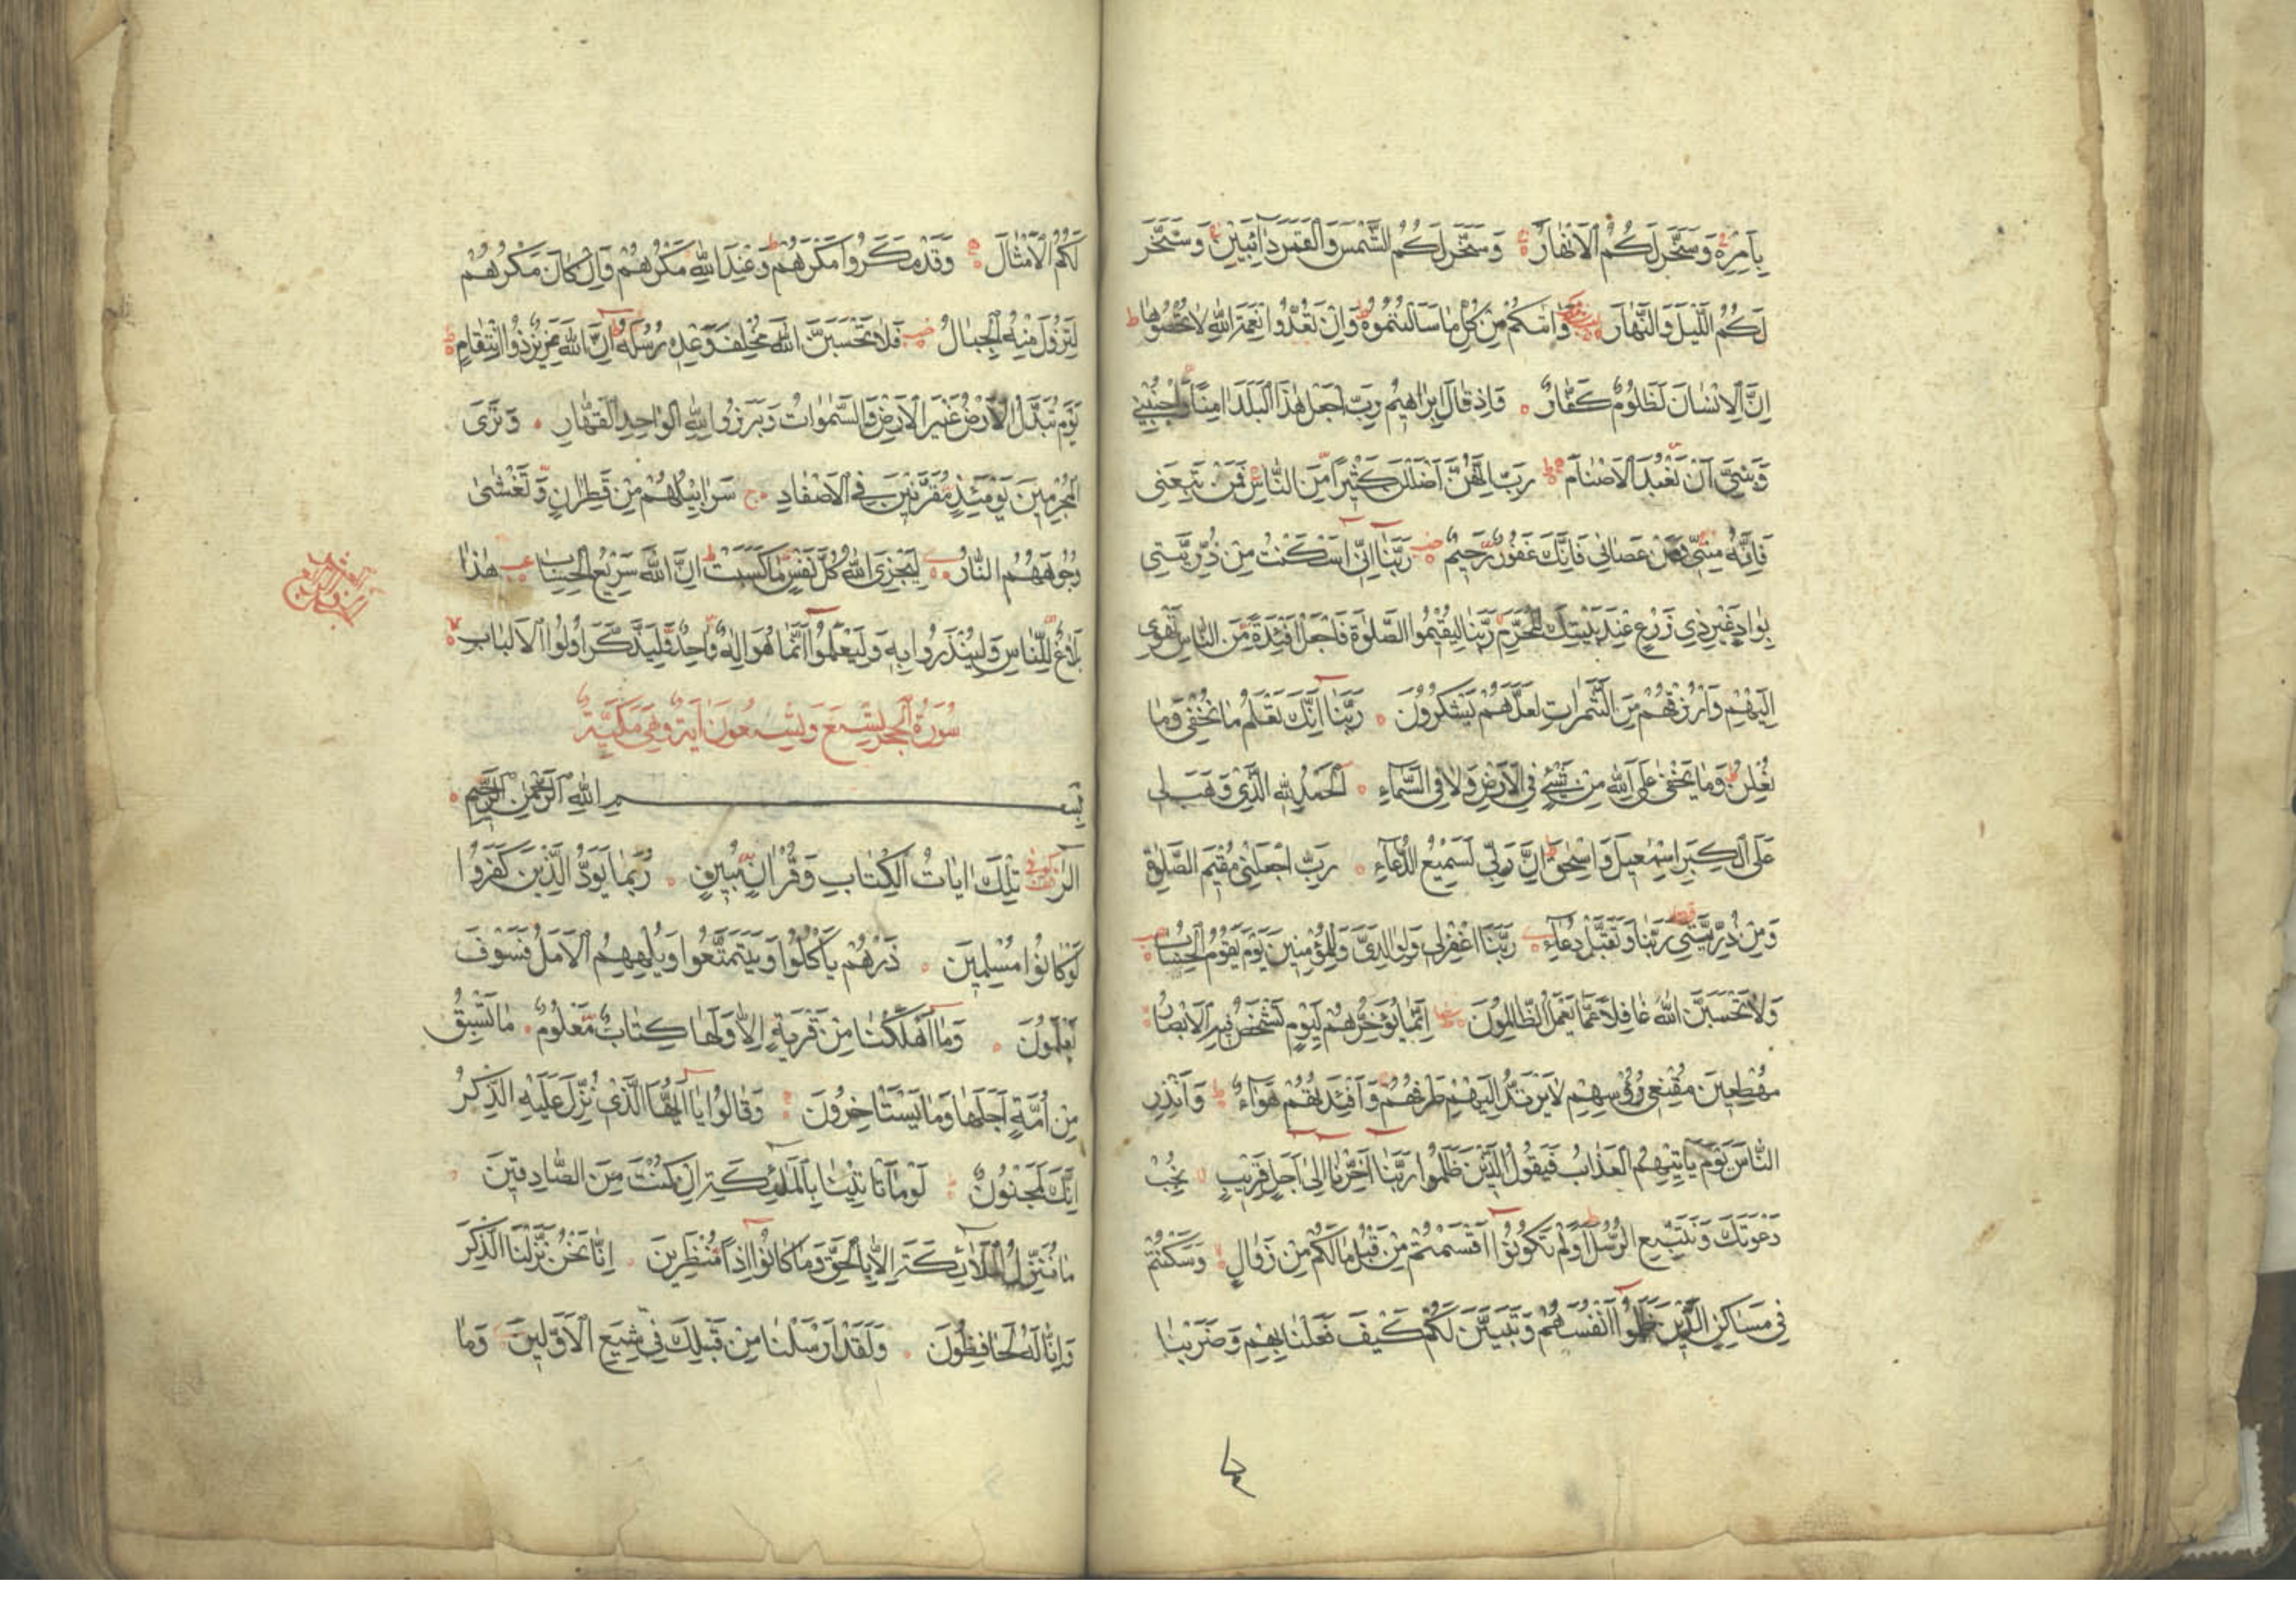 بِاَمْرِهِ وَسَخَّرَ لَكُمُ الْاَنْهَارَ وَسَخَّرَ لَكُمُ الشَّمْسَ وَالْقَمَرَ دَائِبَيْنِ وَسَخَّرَ
لَكُمُ اللَّيْلَ وَالنَّهَارَ وَاٰتٰيكُمْ مِنْ كُلِّ مَا سَاَلْتُمُوهُ وَاِنْ تَعُدُّوا نِعْمَةَ اللّٰهِ لَا تُحْصُوهَا
اِنَّ الْاِنْسَانَ لَظَلُومٌ كَفَّارٌ وَاِذْ قَالَ اِبْرٰاهِيمُ رَبِّ اجْعَلْ هٰذَا الْبَلَدَ اٰمِنًا وَاجْنُبْنِي
وَبَنِيَّ اَنْ نَعْبُدَ الْاَصْنَامَ رَبِّ اِنَّهُنَّ اَضْلَلْنَ كَثِيرًا مِنَ النَّاسِ فَمَنْ تَبِعَنِي
فَاِنَّهُ مِنِّي وَمَنْ عَصَانِي فَاِنَّكَ غَفُورٌ رَحِيمٌ رَبَّنَا اِنِّي اَسْكَنْتُ مِنْ ذُرِّيَّتِي
بِوَادٍ غَيْرِ ذِي زَرْعٍ عِنْدَ بَيْتِكَ الْمُحَرَّمِ رَبَّنَا لِيُقِيمُوا الصَّلٰوةَ فَاجْعَلْ اَفْئِدَةً مِنَ النَّاسِ تَهْوِي
اِلَيْهِمْ وَارْزُقْهُمْ مِنَ الثَّمَرَاتِ لَعَلَّهُمْ يَشْكُرُونَ رَبَّنَا اِنَّكَ تَعْلَمُ مَا نُخْفِي وَمَا
نُعْلِنُ وَمَا يَخْفٰى عَلَى اللّٰهِ مِنْ شَيْءٍ فِي الْاَرْضِ وَلَا فِي السَّمَاءِ اَلْحَمْدُ لِلّٰهِ الَّذِي وَهَبَ لِي
عَلَى الْكِبَرِ اِسْمٰعِيلَ وَاِسْحٰقَ اِنَّ رَبِّي لَسَمِيعُ الدُّعَاءِ رَبِّ اجْعَلْنِي مُقِيمَ الصَّلٰوةِ
وَمِنْ ذُرِّيَّتِي رَبَّنَا وَتَقَبَّلْ دُعَاءِ رَبَّنَا اغْفِرْ لِي وَلِوَالِدَيَّ وَلِلْمُؤْمِنِينَ يَوْمَ يَقُومُ الْحِسَابُ
وَلَا تَحْسَبَنَّ اللّٰهَ غَافِلًا عَمَّا يَعْمَلُ الظَّالِمُونَ اِنَّمَا يُؤَخِّرُهُمْ لِيَوْمٍ تَشْخَصُ فِيهِ الْاَبْصَارُ
مُهْطِعِينَ مُقْنِعِي رُؤُسِهِمْ لَا يَرْتَدُّ اِلَيْهِمْ طَرْفُهُمْ وَاَفْئِدَتُهُمْ هَوَاءٌ وَاَنْذِرِ
النَّاسَ يَوْمَ يَأْتِيهِمُ الْعَذَابُ فَيَقُولُ الَّذِينَ ظَلَمُوا رَبَّنَا اَخِّرْنَا اِلٰى اَجَلٍ قَرِيبٍ نُجِبْ
دَعْوَتَكَ وَنَتَّبِعِ الرُّسُلَ اَوَلَمْ تَكُونُوا اَقْسَمْتُمْ مِنْ قَبْلُ مَا لَكُمْ مِنْ زَوَالٍ وَسَكَنْتُمْ
فِي مَسَاكِنِ الَّذِينَ ظَلَمُوا اَنْفُسَهُمْ وَتَبَيَّنَ لَكُمْ كَيْفَ فَعَلْنَا بِهِمْ وَضَرَبْنَا
لَكُمُ الْاَمْثَالَ وَقَدْ مَكَرُوا مَكْرَهُمْ وَعِنْدَ اللّٰهِ مَكْرُهُمْ وَاِنْ كَانَ مَكْرُهُمْ
لِتَزُولَ مِنْهُ الْجِبَالُ فَلَا تَحْسَبَنَّ اللّٰهَ مُخْلِفَ وَعْدِهِ رُسُلَهُ اِنَّ اللّٰهَ عَزِيزٌ ذُو انْتِقَامٍ
يَوْمَ تُبَدَّلُ الْاَرْضُ غَيْرَ الْاَرْضِ وَالسَّمٰوَاتُ وَبَرَزُوا لِلّٰهِ الْوَاحِدِ الْقَهَّارِ وَتَرَى
الْمُجْرِمِينَ يَوْمَئِذٍ مُقَرَّنِينَ فِي الْاَصْفَادِ سَرَابِيلُهُمْ مِنْ قَطِرَانٍ وَتَغْشٰى
وُجُوهَهُمُ النَّارُ لِيَجْزِيَ اللّٰهُ كُلَّ نَفْسٍ مَا كَسَبَتْ اِنَّ اللّٰهَ سَرِيعُ الْحِسَابِ هٰذَا
بَلَاغٌ لِلنَّاسِ وَلِيُنْذَرُوا بِهِ وَلِيَعْلَمُوا اَنَّمَا هُوَ اِلٰهٌ وَاحِدٌ وَلِيَذَّكَّرَ اُولُوا الْاَلْبَابِ
سُورَةُ الْحِجْرِ تِسْعَ وَتِسْعُونَ اٰيَةً وَهِيَ مَكِّيَّةٌ
بِسْمِ اللّٰهِ الرَّحْمٰنِ الرَّحِيمِ
الٓرٰ تِلْكَ اٰيَاتُ الْكِتَابِ وَقُرْاٰنٍ مُبِينٍ رُبَمَا يَوَدُّ الَّذِينَ كَفَرُوا
لَوْ كَانُوا مُسْلِمِينَ ذَرْهُمْ يَأْكُلُوا وَيَتَمَتَّعُوا وَيُلْهِهِمُ الْاَمَلُ فَسَوْفَ
يَعْلَمُونَ وَمَا اَهْلَكْنَا مِنْ قَرْيَةٍ اِلَّا وَلَهَا كِتَابٌ مَعْلُومٌ مَا تَسْبِقُ
مِنْ اُمَّةٍ اَجَلَهَا وَمَا يَسْتَأْخِرُونَ وَقَالُوا يَا اَيُّهَا الَّذِي نُزِّلَ عَلَيْهِ الذِّكْرُ
اِنَّكَ لَمَجْنُونٌ لَوْ مَا تَأْتِينَا بِالْمَلٰئِكَةِ اِنْ كُنْتَ مِنَ الصَّادِقِينَ
مَا نُنَزِّلُ الْمَلَائِكَةَ اِلَّا بِالْحَقِّ وَمَا كَانُوا اِذًا مُنْظَرِينَ اِنَّا نَحْنُ نَزَّلْنَا الذِّكْرَ
وَاِنَّا لَهُ لَحَافِظُونَ وَلَقَدْ اَرْسَلْنَا مِنْ قَبْلِكَ فِي شِيَعِ الْاَوَّلِينَ وَمَا